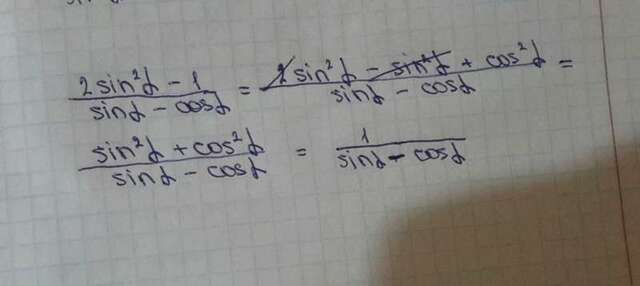 (2sin²α - 1)/(sinα - cosα) = (2sin²α - sin²α + cos²α)/(sinα - cosα) =
(sin²α + cos²α)/(sinα - cosα) = 1/(sinα - cosα)